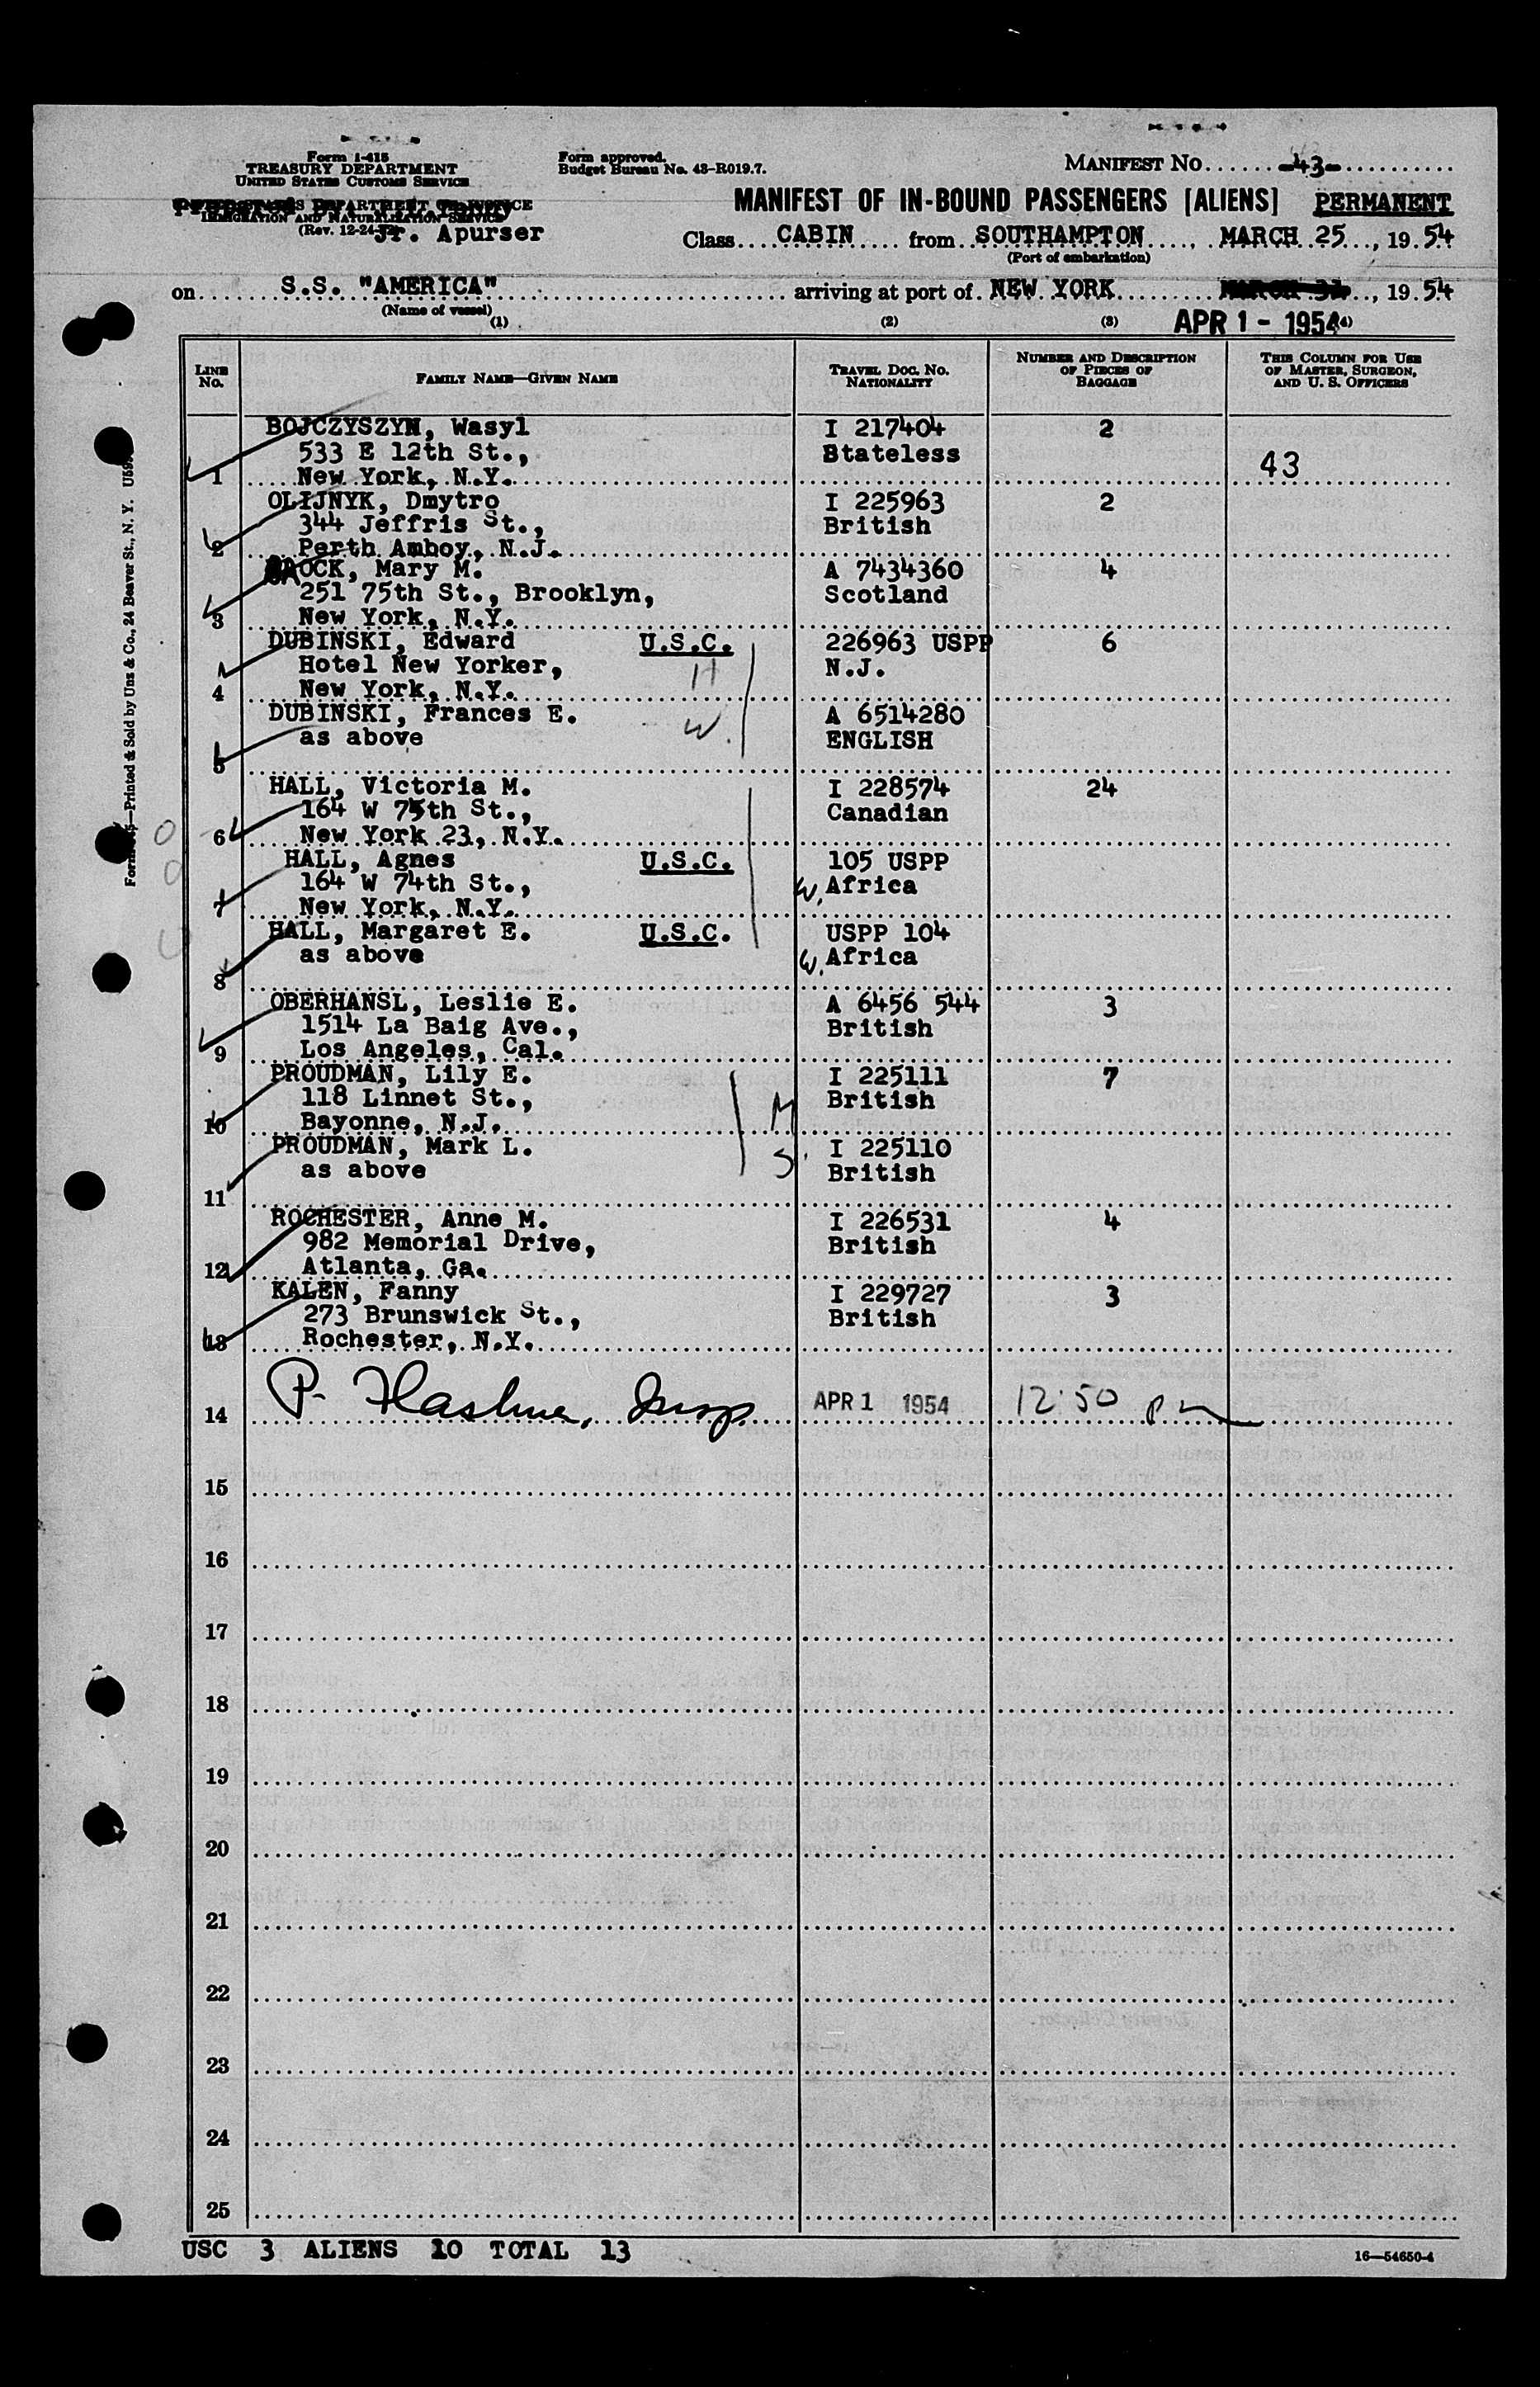 Form I-415
TREASURY DEPARTMENT
UNITED STATES CUSTOMS SERVICE
DEPARTMENT OF JUSTICE
IMMIGRATION AND NATURALIZATION SERVICE
(Rev. 12-24-
Jr. Apurser
Form approved.
Budget Bureau No. 43-R019.7.
MANIFEST NO. -43-
MANIFEST OF IN-BOUND PASSENGERS [ALIENS] PERMANENT
Class CABIN from SOUTHAMPTON, MARCH 25, 1954
(Port of embarkation)
on S.S. "AMERICA" arriving at port of NEW YORK MARCH 31, 1954
(Name of vessel)
APR 1 - 1954
(1) (2) (3) (4)
LINE No. FAMILY NAME—GIVEN NAME TRAVEL DOC. NO. NATIONALITY NUMBER AND DESCRIPTION OF PIECES OF BAGGAGE THIS COLUMN FOR USE OF MASTER, SURGEON, AND U. S. OFFICERS
BOJCZYSZYN, Wasyl I 217404 2
533 E 12th St., Stateless
1 New York, N.Y. 43
OLIJNYK, Dmytro I 225963 2
344 Jeffris St., British
2 Perth Amboy, N.J.
OCK, Mary M. A 7434360 4
251 75th St., Brooklyn, Scotland
3 New York, N.Y.
DUBINSKI, Edward U.S.C. 226963 USPP 6
Hotel New Yorker, H N.J.
4 New York, N.Y.
DUBINSKI, Frances E. W. A 6514280
as above ENGLISH
5
HALL, Victoria M. I 228574 24
164 W 75th St., Canadian
6 New York 23, N.Y.
HALL, Agnes U.S.C. 105 USPP
164 W 74th St., W. Africa
7 New York, N.Y.
HALL, Margaret E. U.S.C. USPP 104
as above W. Africa
8
OBERHANSL, Leslie E. A 6456 544 3
1514 La Baig Ave., British
9 Los Angeles, Cal.
PROUDMAN, Lily E. I 225111 7
118 Linnet St., M British
10 Bayonne, N.J.
PROUDMAN, Mark L. S. I 225110
as above British
11
ROCHESTER, Anne M. I 226531 4
982 Memorial Drive, British
12 Atlanta, Ga.
KALEN, Fanny I 229727 3
273 Brunswick St., British
13 Rochester, N.Y.
14 P. Insp. APR 1 1954 12:50 pm
15
16
17
18
19
20
21
22
23
24
25
USC 3 ALIENS 10 TOTAL 13
16—54650-4
—Printed & Sold by Unz & Co., 24 Beaver St., N. Y.